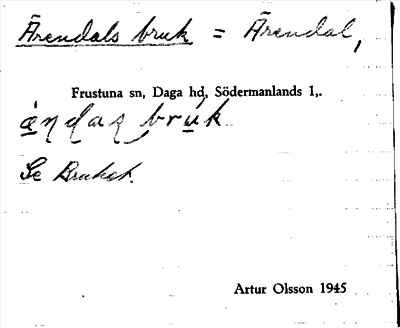 Ärendals bruk = Ärendal,
Frustuna sn, Daga hd, Södermanlands l,.
bruk
Se Bruket.
Artur Olsson 1945